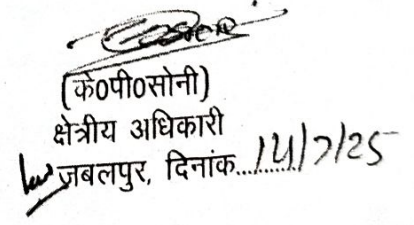 (के0पी0सोनी)
क्षेत्रीय अधिकारी
जबलपुर, दिनांक............14/7/25